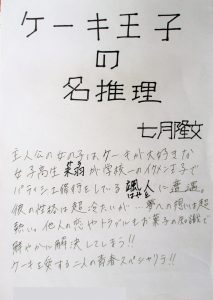 ケーキ王子
の
名推理
七月隆文
主人公の女の子は、ケーキが大好きな
女子高生 未羽が学校一のイケメン王子で
パティシエ修行をしている颯人に遭遇。
はやと
彼の性格は超冷たいが…夢への想いは超
熱い。他人の恋やトラブルもお菓子の知識で
鮮やかに解決してしまう!!
ケーキを愛する二人の青春スペシャリテ!!